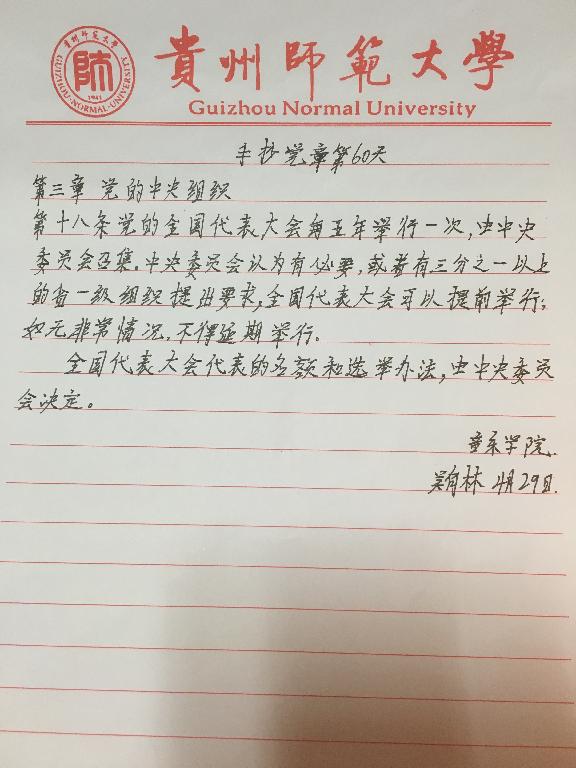 貴州師範大學
Guizhou Normal University
貴州師範大學
GUIZHOU·NORMAL·UNIVERSITY
1941
手抄党章第60天
第三章 党的中央组织
第十八条党的全国代表大会每五年举行一次,由中央
委员会召集。中央委员会认为有必要,或者有三分之一以上
的省一级组织提出要求,全国代表大会可以提前举行;
如无非常情况,不得延期举行。
全国代表大会代表的名额和选举办法,由中央委员
会决定。
学院.
林 4月29日.